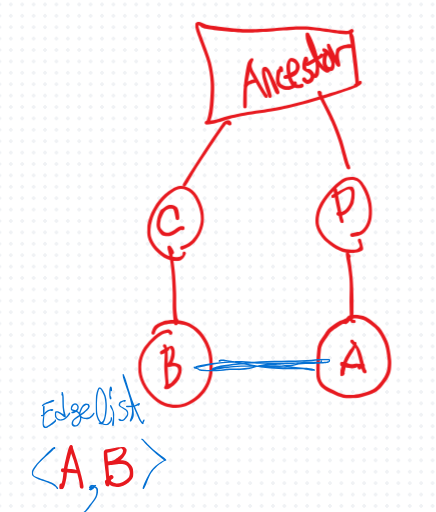 Ancestor
C
D
B
A
Edgelist
<A,B>